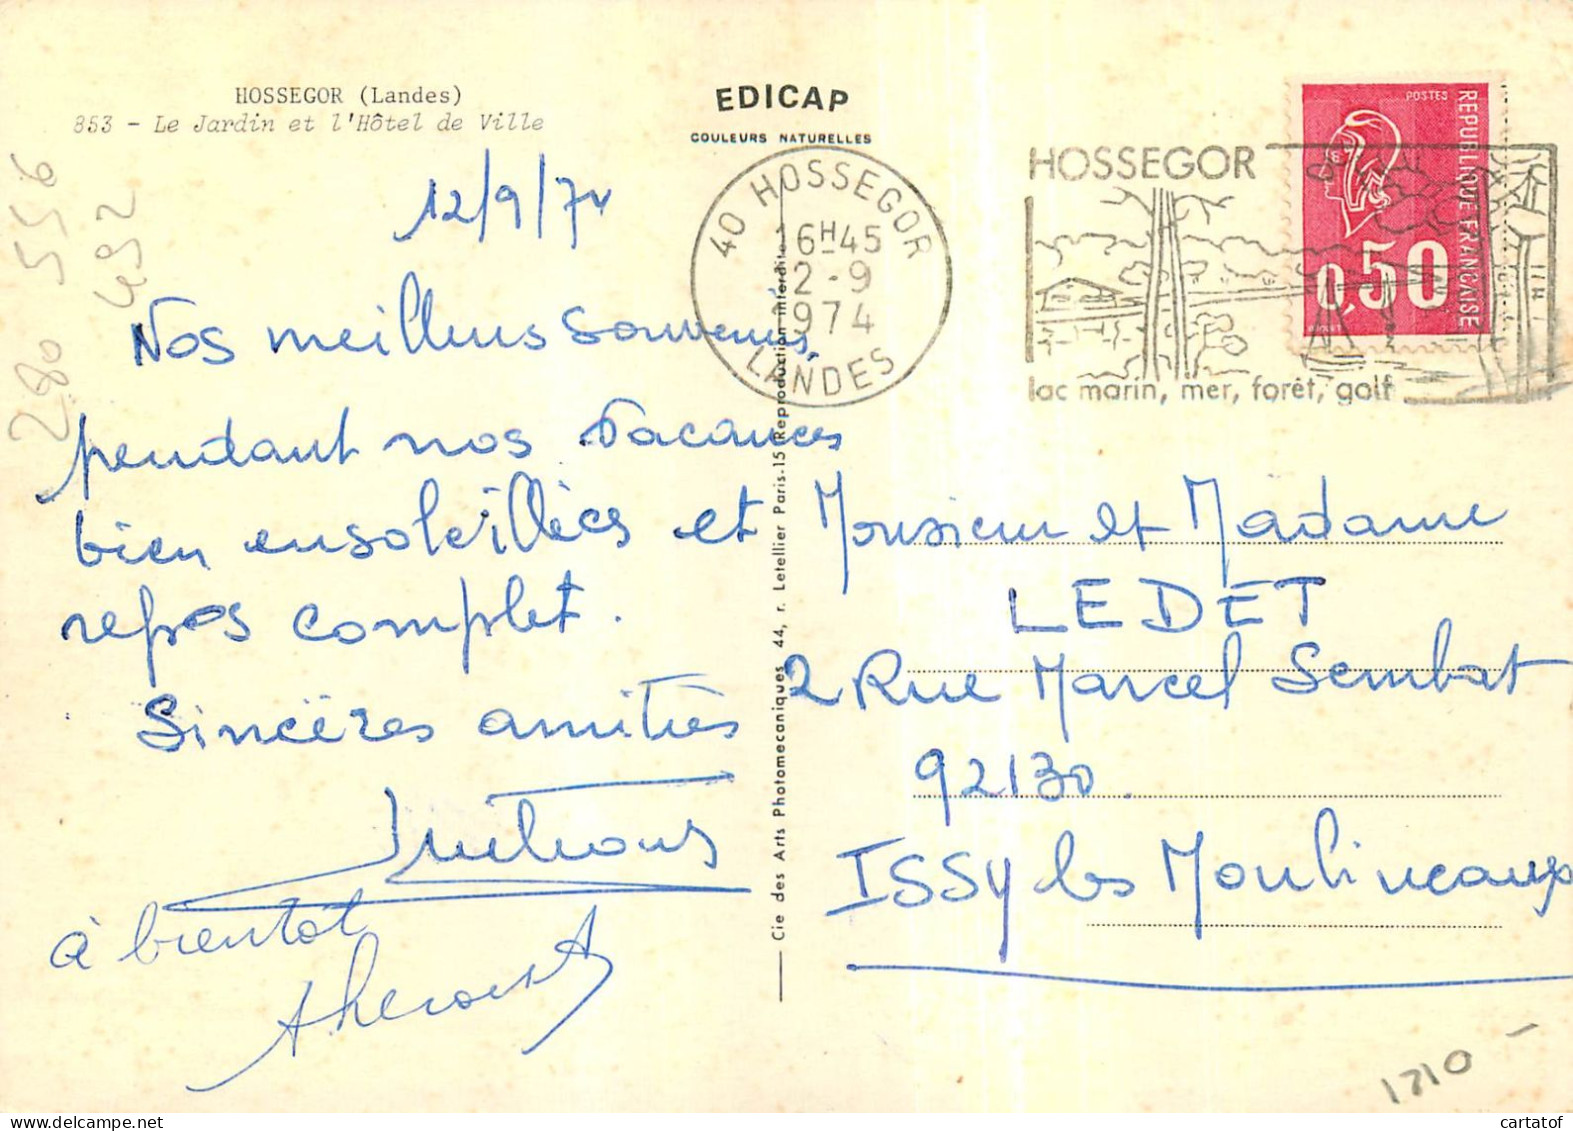 HOSSEGOR (Landes)
853 - Le Jardin et l'Hôtel de Ville
EDICAP
COULEURS NATURELLES
280 556
492
12/9/74
Nos meilleurs souvenirs
pendant nos vacances
bien ensoleillées et
repos complet.
Sincères amitiés
à bientot
Cie des Arts Photomecaniques 44, r. Letellier Paris-15 Reproduction interdite
40 HOSSEGOR
16H45
12-9
1974
LANDES
HOSSEGOR
lac marin, mer, forêt, golf
POSTES
REPUBLIQUE FRANCAISE
0,50
Monsieur et Madame
LEDET
2 Rue Marcel Sembat
92130.
ISSY les Moulineaux
1710 -
cartatof